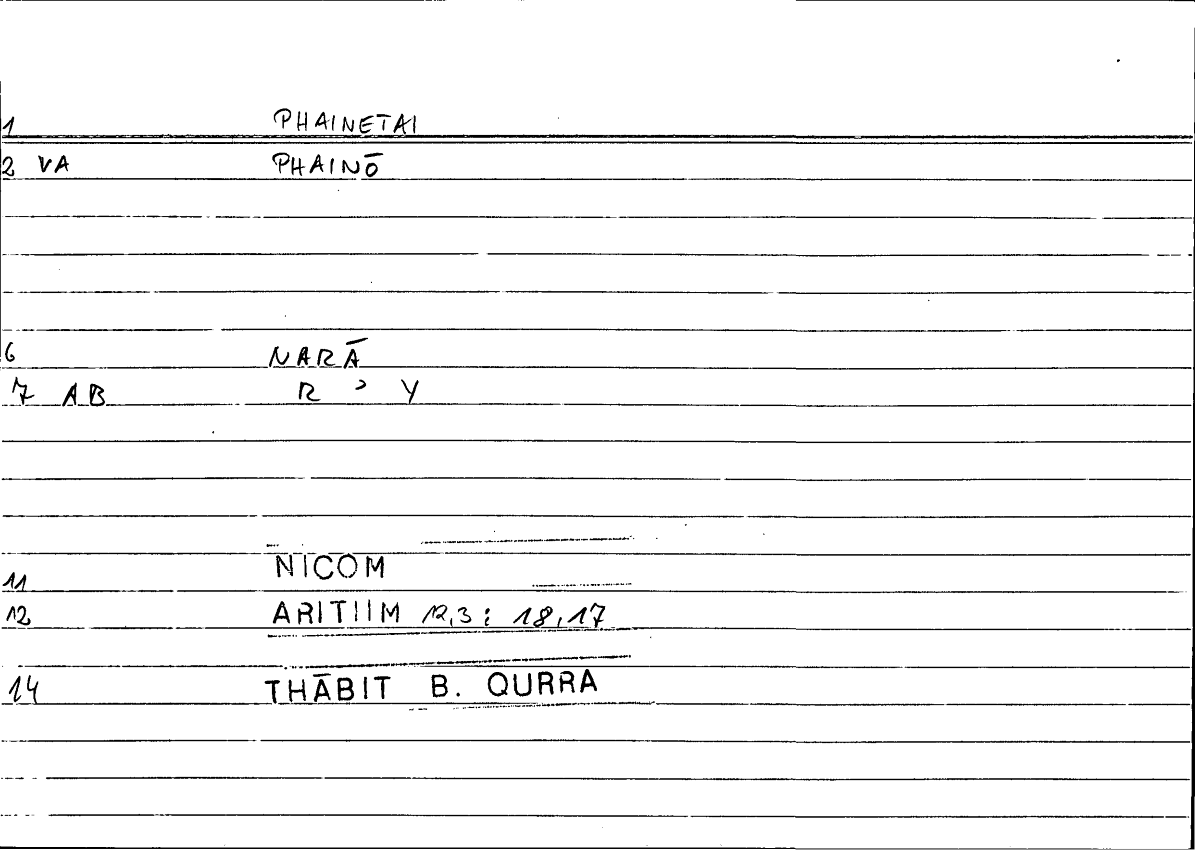 1 PHAINETAI
2 VA PHAINŌ
6 NARĀ
7 AB R ʾ Y
11 NICOM
12 ARITIIM 12,3 ; 18,17
14 THĀBIT B. QURRA